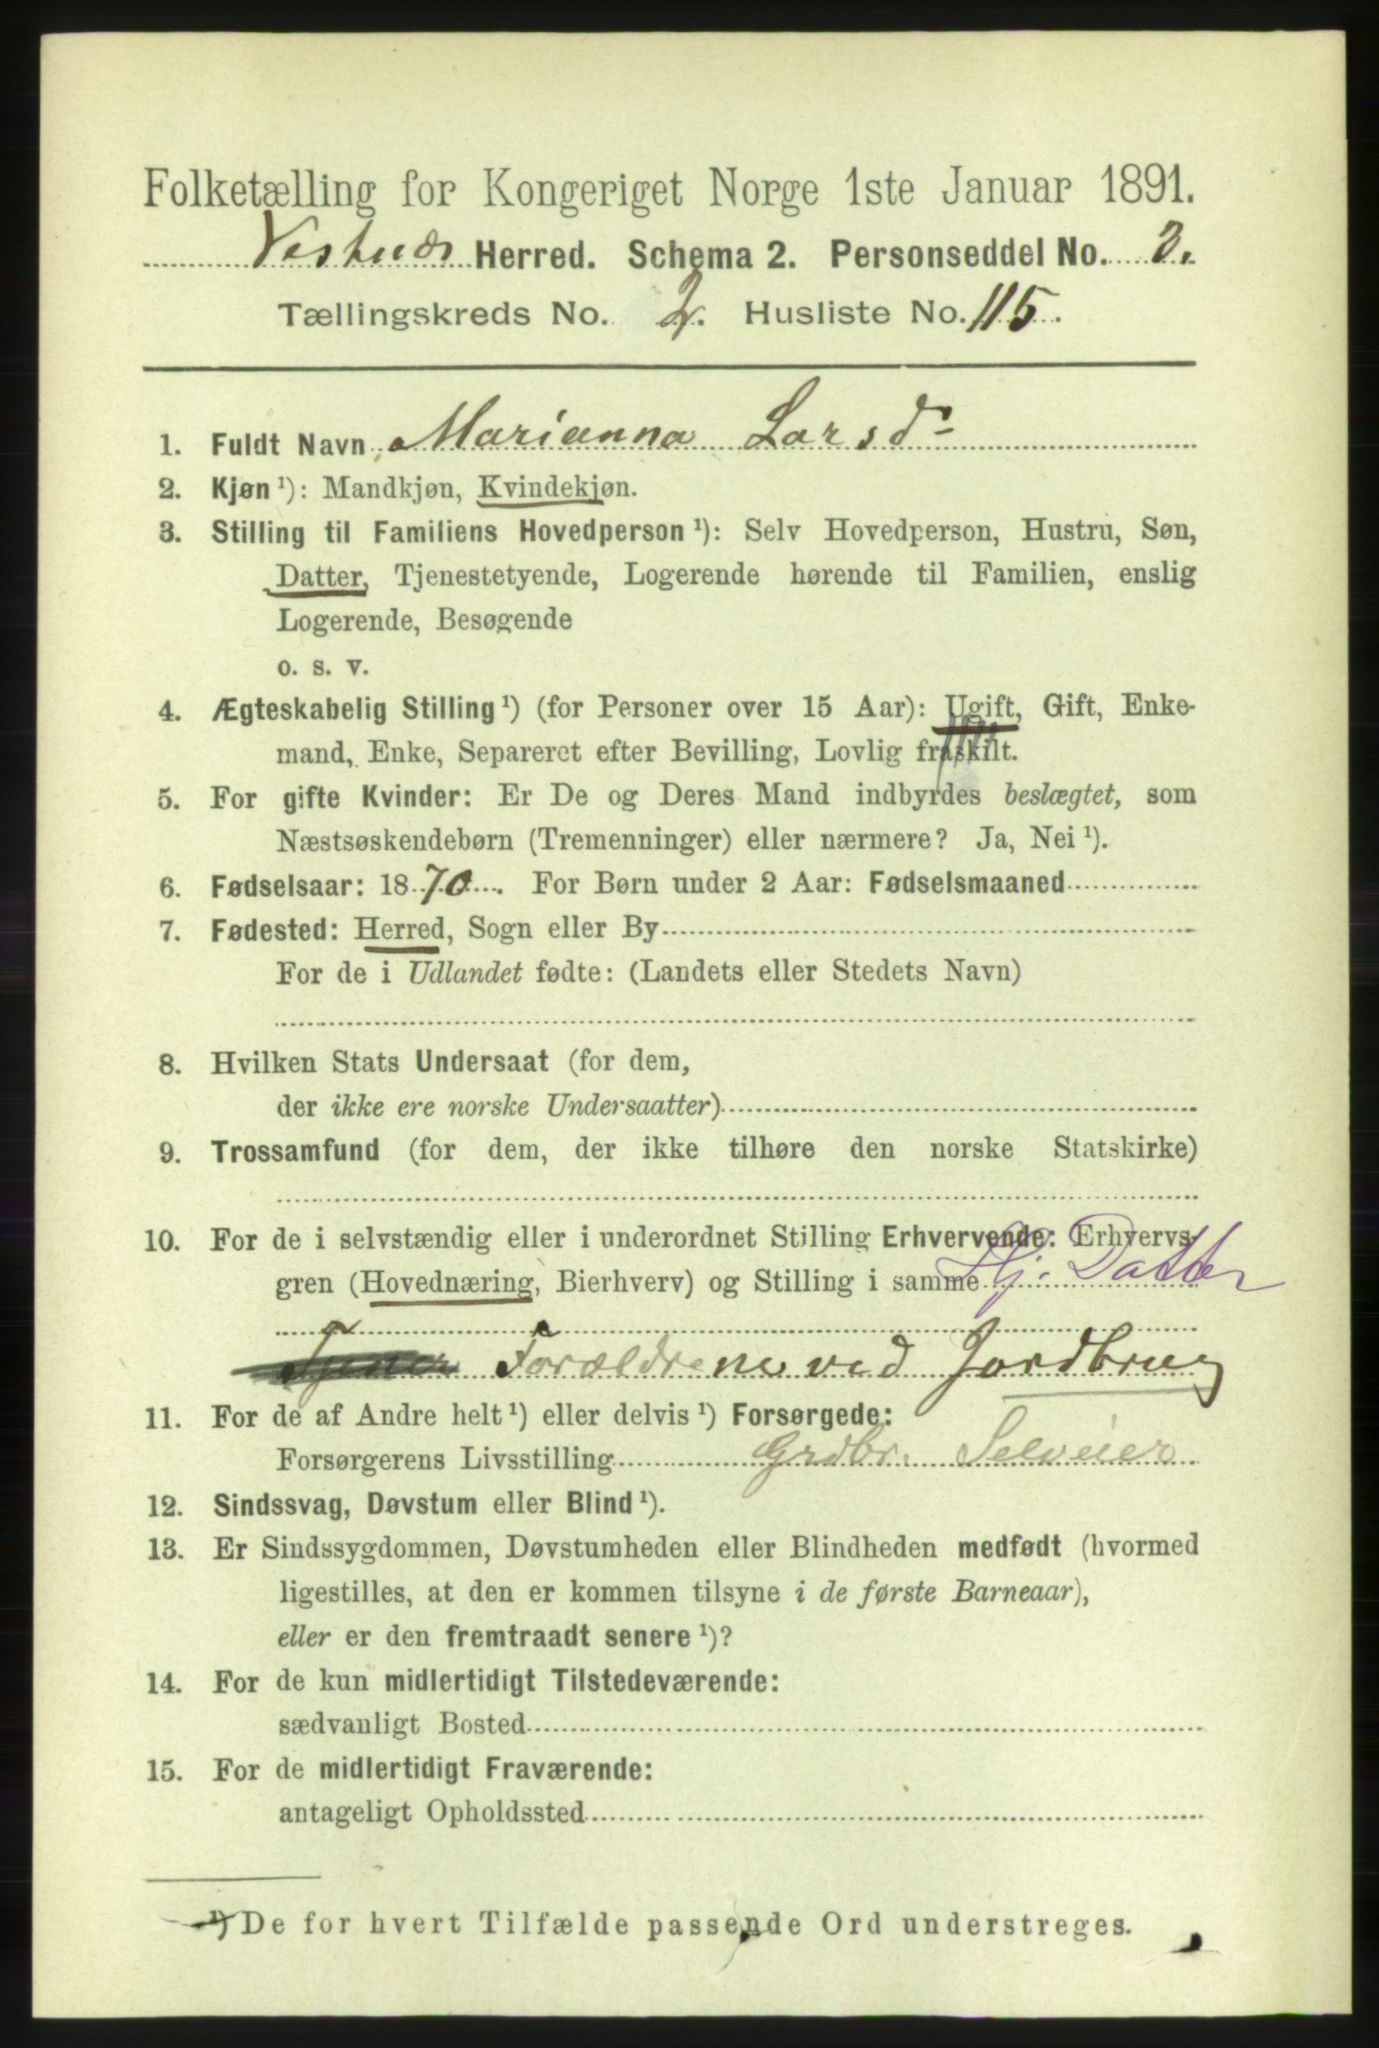 Folketælling for Kongeriget Norge 1ste Januar 1891.
Vestnæs Herred. Schema 2. Personseddel No. 3.
Tællingskreds No. 2. Husliste No. 115.
1. Fuldt Navn Marianna Larsd.
2. Kjøn ¹): Mandkjøn, Kvindekjøn.
3. Stilling til Familiens Hovedperson ¹): Selv Hovedperson, Hustru, Søn,
Datter, Tjenestetyende, Logerende hørende til Familien, enslig
Logerende, Besøgende
o. s. v.
4. Ægteskabelig Stilling ¹) (for Personer over 15 Aar): Ugift, Gift, Enke-
mand, Enke, Separeret efter Bevilling, Lovlig fraskilt.
5. For gifte Kvinder: Er De og Deres Mand indbyrdes beslægtet, som
Næstsøskendebørn (Tremenninger) eller nærmere? Ja, Nei ¹).
6. Fødselsaar: 1870. For Børn under 2 Aar: Fødselsmaaned
7. Fødested: Herred, Sogn eller By
For de i Udlandet fødte: (Landets eller Stedets Navn)
8. Hvilken Stats Undersaat (for dem,
der ikke ere norske Undersaatter)
9. Trossamfund (for dem, der ikke tilhøre den norske Statskirke)
10. For de i selvstændig eller i underordnet Stilling Erhvervende: Erhvervs-
gren (Hovednæring, Bierhverv) og Stilling i samme Hj. Datter
Tjener Forældrene ved Jordbrug
11. For de af Andre helt ¹) eller delvis ¹) Forsørgede:
Forsørgerens Livsstilling Grdbr. Selveier
12. Sindssvag, Døvstum eller Blind ¹).
13. Er Sindssygdommen, Døvstumheden eller Blindheden medfødt (hvormed
ligestilles, at den er kommen tilsyne i de første Barneaar),
eller er den fremtraadt senere ¹)?
14. For de kun midlertidigt Tilstedeværende:
sædvanligt Bosted
15. For de midlertidigt Fraværende:
antageligt Opholdssted
¹) De for hvert Tilfælde passende Ord understreges.